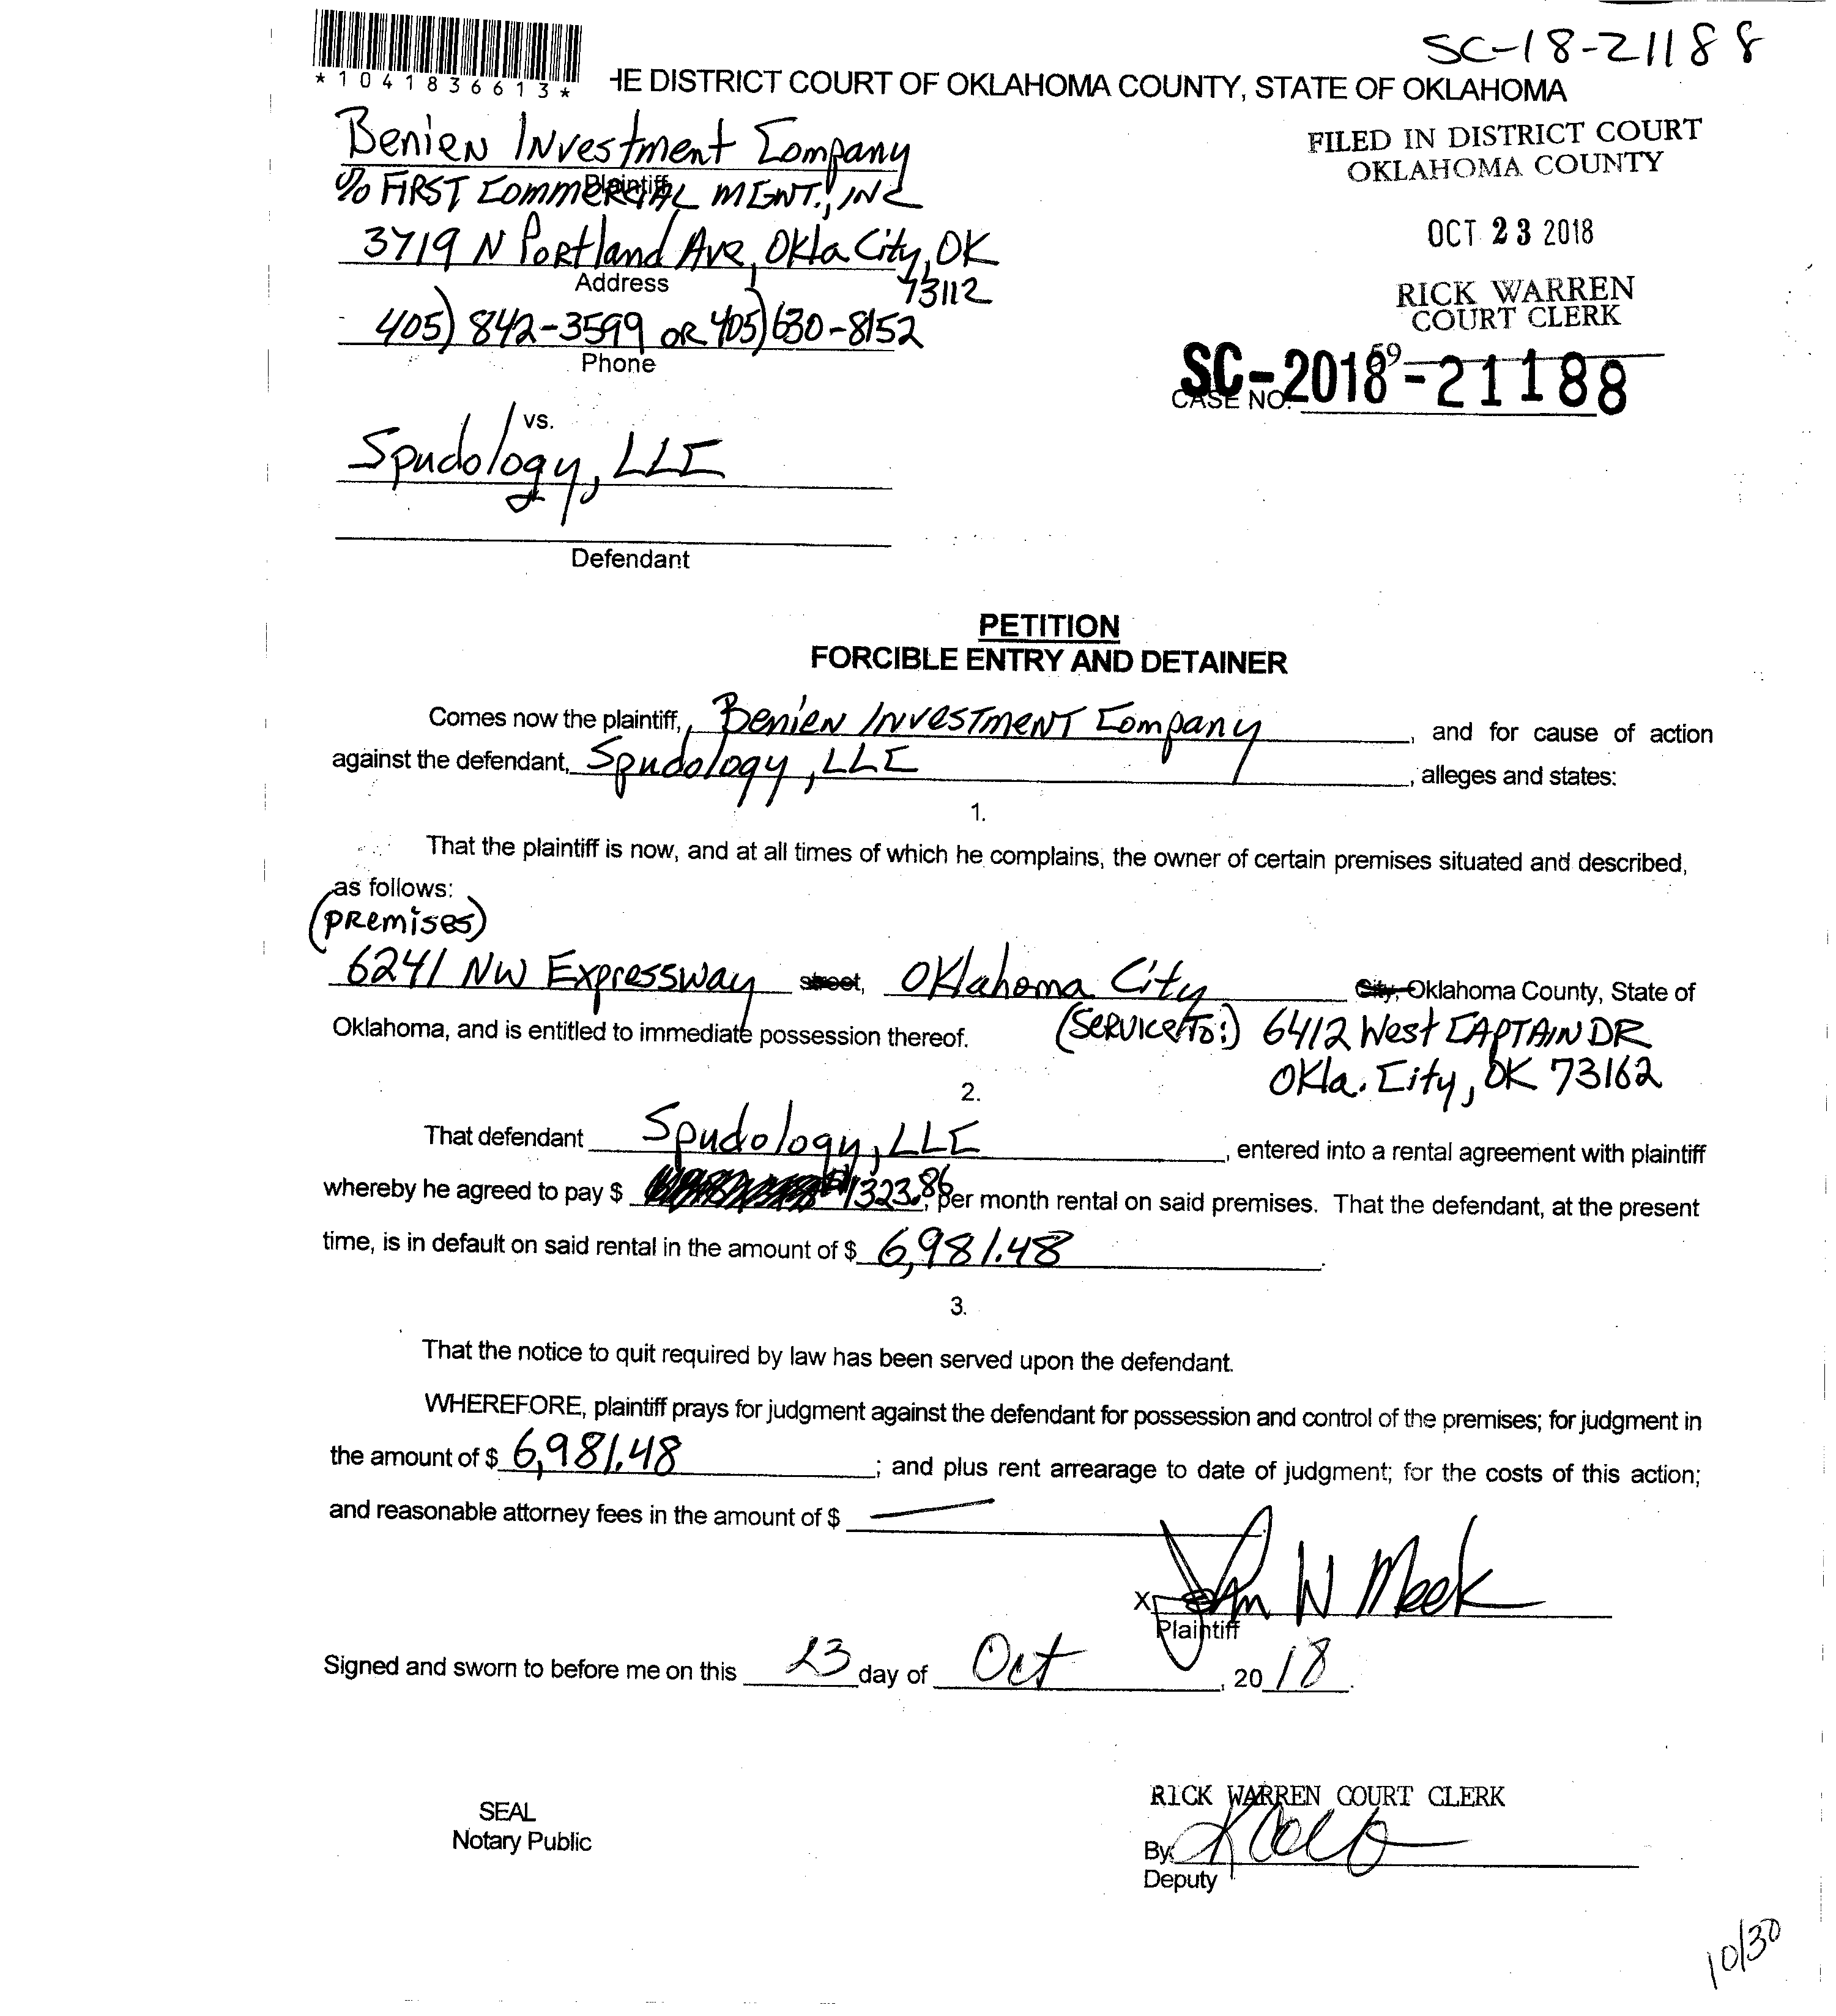 SC-18-21188
*1041836613*
HE DISTRICT COURT OF OKLAHOMA COUNTY, STATE OF OKLAHOMA
Benien Investment Company
Plaintiff
% FIRST COMMERCIAL MGNT., INC
3719 N Portland Ave, Okla City, OK
Address
73112
405) 842-3599 OR 405) 630-8152
Phone
FILED IN DISTRICT COURT
OKLAHOMA COUNTY
OCT 23 2018
RICK WARREN
COURT CLERK
59
SC-2018-21188
CASE NO.
vs.
Spudology, LLC
Defendant
PETITION
FORCIBLE ENTRY AND DETAINER
Comes now the plaintiff, Benien Investment Company, and for cause of action
against the defendant, Spudology, LLC, alleges and states:
1.
That the plaintiff is now, and at all times of which he complains, the owner of certain premises situated and described,
as follows:
(premises)
6241 NW Expressway street, Oklahoma City City, Oklahoma County, State of
Oklahoma, and is entitled to immediate possession thereof. (Service To:) 6412 West CAPTAIN DR
Okla. City, OK 73162
2.
That defendant Spudology, LLC, entered into a rental agreement with plaintiff
whereby he agreed to pay $ $1323.86, per month rental on said premises. That the defendant, at the present
time, is in default on said rental in the amount of $ 6,981.48.
3.
That the notice to quit required by law has been served upon the defendant.
WHEREFORE, plaintiff prays for judgment against the defendant for possession and control of the premises; for judgment in
the amount of $ 6,981.48; and plus rent arrearage to date of judgment; for the costs of this action;
and reasonable attorney fees in the amount of $ —
X W Meek
Plaintiff
Signed and sworn to before me on this 23 day of Oct, 2018.
SEAL
Notary Public
RICK WARREN COURT CLERK
By:
Deputy
10/30